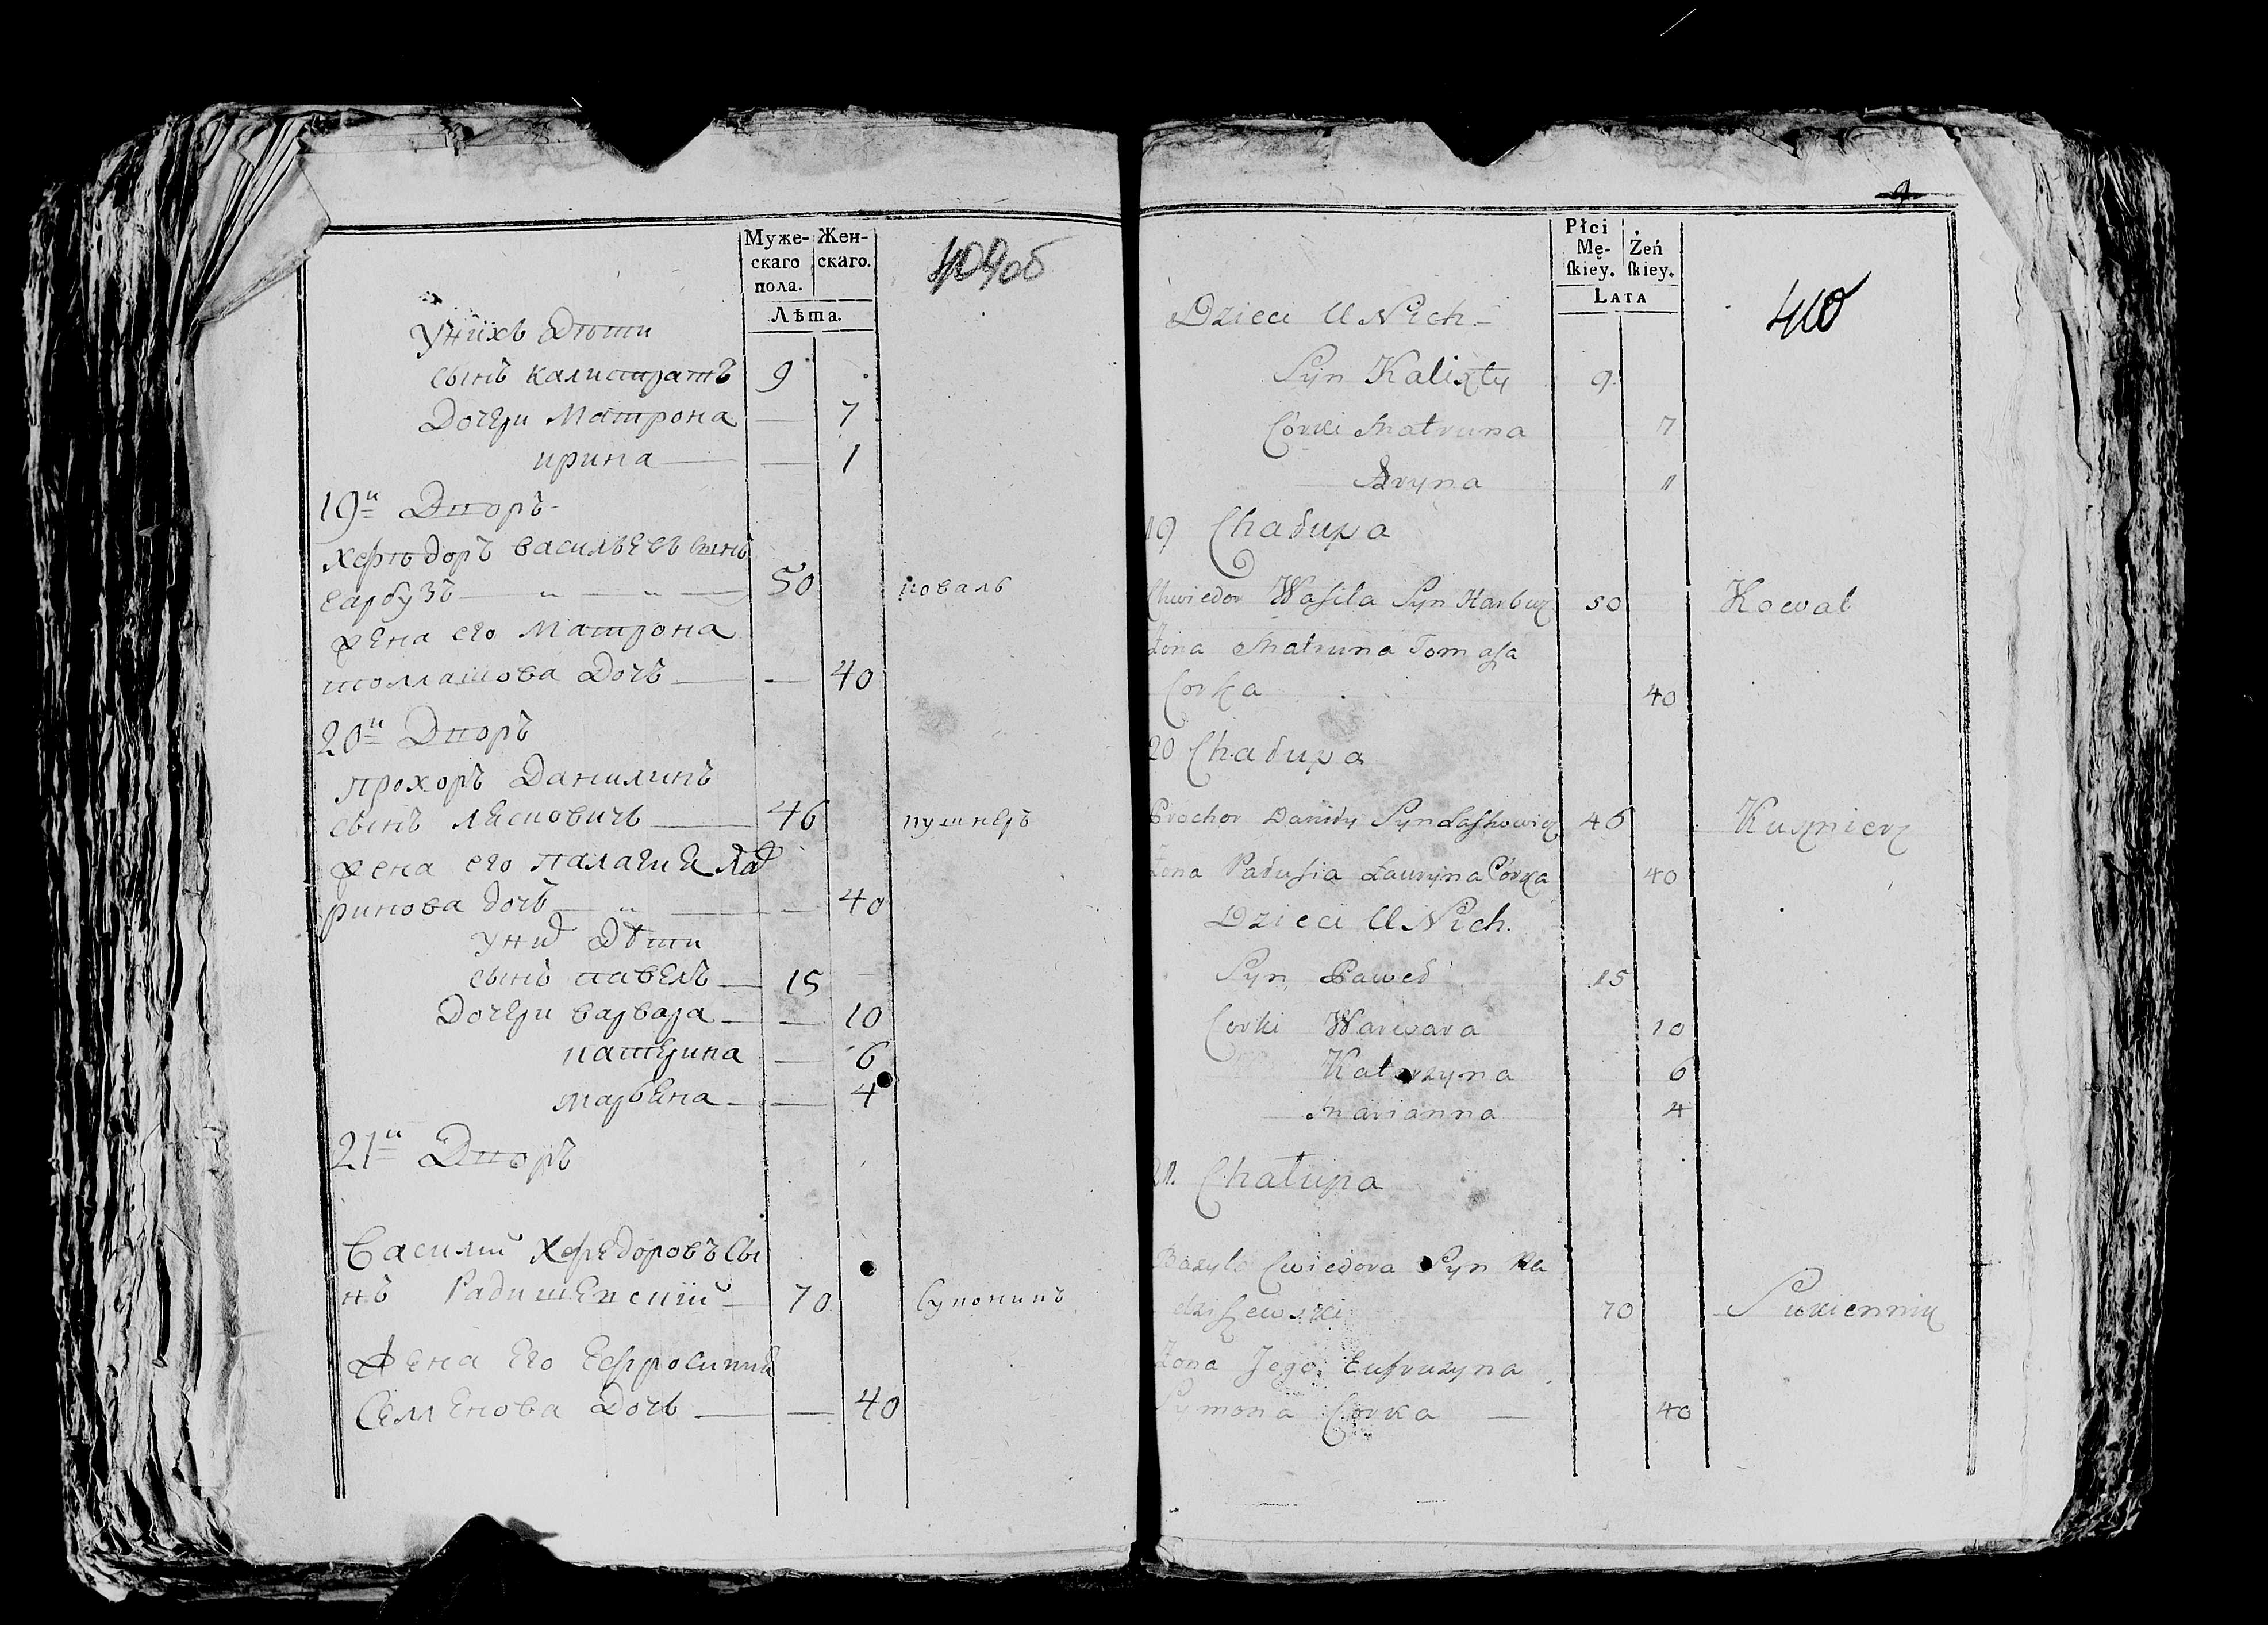 Муже-
скаго
пола.
Жен-
скаго.
Лѣта.
409об
Унихъ Дѣти
сынъ калистратъ 9
Дочери Матрона — 7
ирина — — 1
19й Дворъ
Хефѣдоръ васильевъ сынъ
гарбузъ — " — " — 50 коваль
жена его Матрона
томашова Дочь — — 40
20й Дворъ
прохоръ Данилинъ
сынъ лясковичъ — 46 кушнеръ
жена его палагия Лав
ринова дочь — " — — 40
уних Дѣти
сынъ павелъ — 15
Дочери варвара — — 10
катерина — 6
марьена — — 4
21й Дворъ
Василий Хефедоровъ Сы
нъ Радишевский — 70 Суконникъ
Жена Его Ефросиния
Семенова Дочь — — 40
9
Płci
Mę-
ſkiey.
Żeń
ſkiey.
Lata
410
Dzieci U Nich —
Syn Kalixty 9
Corki Matruna 7
Aryna 1
19 Chałupa
Chwiedor Wasila Syn Harbuz 50 Kowal
Żona Matruna Tomasza
Corka 40
20 Chałupa
Prochor Daniły Syn Laskowicz 46 Kuznierz
Żona Pałusia Lawryna Córka 40
Dzieci U Nich.
Syn Paweł 15
Corki Warwara 10
Katarzyna 6
Marianna 4
21. Chałupa
Bazyla Cwiedora Syn Ra
dziszewski 70 Sukiennik
Żona Jego Eufruzyna
Symona Corka — 40